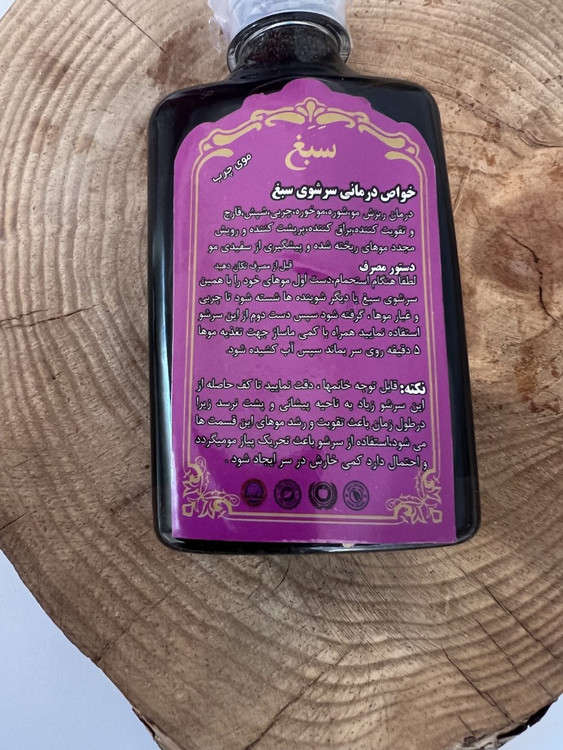 سِبَغ
موی چرب
خواص درمانی سرشوی سبغ
درمان ریزش مو،شوره،موخوره،چربی،شپش،قارچ
و تقویت کننده،براق کننده،پرپشت کننده و رویش
مجدد موهای ریخته شده و پیشگیری از سفیدی مو
دستور مصرف قبل از مصرف تکان دهید
لطفا هنگام استحمام،دست اول موهای خود را با همین
سرشوی سبغ یا دیگر شوینده ها شسته شود تا چربی
و غبار موها ، گرفته شود سپس دست دوم از این سرشو
استفاده نمایید همراه با کمی ماساژ جهت تغذیه موها
۵ دقیقه روی سر بماند سپس آب کشیده شود.
نکته: قابل توجه خانمها ، دقت نمایید تا کف حاصله از
این سرشو زیاد به ناحیه پیشانی و پشت نرسد زیرا
درطول زمان باعث تقویت و رشد موهای این قسمت ها
می شود،استفاده از سرشو باعث تحریک پیاز مومیگردد
و احتمال دارد کمی خارش در سر ایجاد شود .